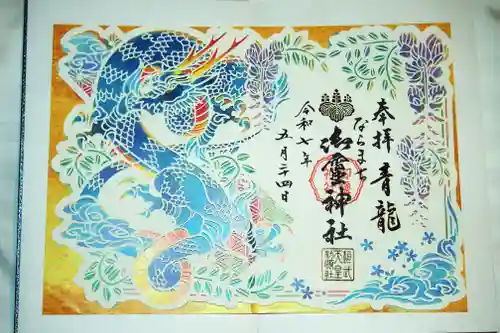 奉拝 青龍
ならまち
御靈神社
令和七年
五月二四日